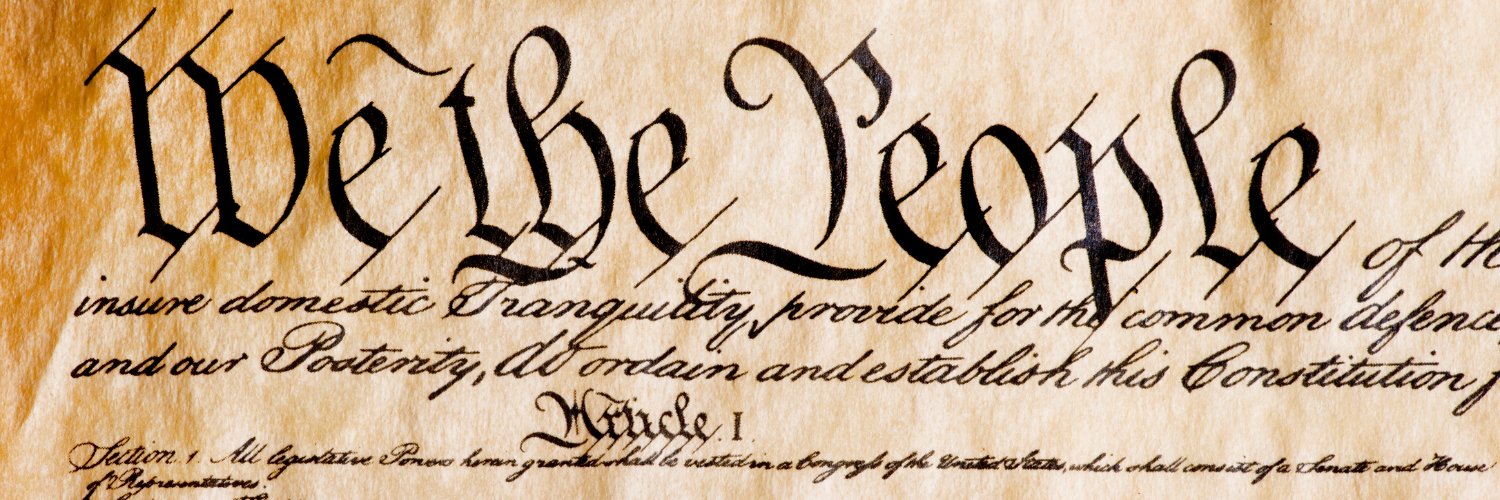 We the People of th
insure domestic Tranquility, provide for the common defence
and our Posterity, do ordain and establish this Constitution f
Article. I.
Section. 1. All legislative Powers herein granted shall be vested in a Congress of the United States, which shall consist of a Senate and House
of Representatives.